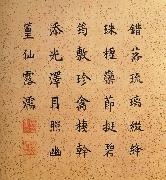 錯落琉璃綴絳
珠樫欒節挺碧
筠敷珍禽棲幹
添光澤月照幽
篁仙露濡